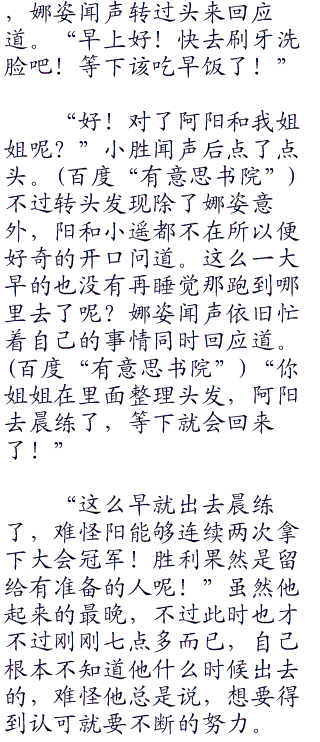 ，娜姿闻声转过头来回应
道。“早上好！快去刷牙洗
脸吧！等下该吃早饭了！”
“好！对了阿阳和我姐
姐呢？”小胜闻声后点了点
头。(百度“有意思书院”)
不过转头发现除了娜姿意
外，阳和小遥都不在所以便
好奇的开口问道。这么一大
早的也没有再睡觉那跑到哪
里去了呢？娜姿闻声依旧忙
着自己的事情同时回应道。
(百度“有意思书院”)“你
姐姐在里面整理头发，阿阳
去晨练了，等下就会回来
了！”
“这么早就出去晨练
了，难怪阳能够连续两次拿
下大会冠军！胜利果然是留
给有准备的人呢！”虽然他
起来的最晚，不过此时也才
不过刚刚七点多而已，自己
根本不知道他什么时候出去
的，难怪他总是说，想要得
到认可就要不断的努力。